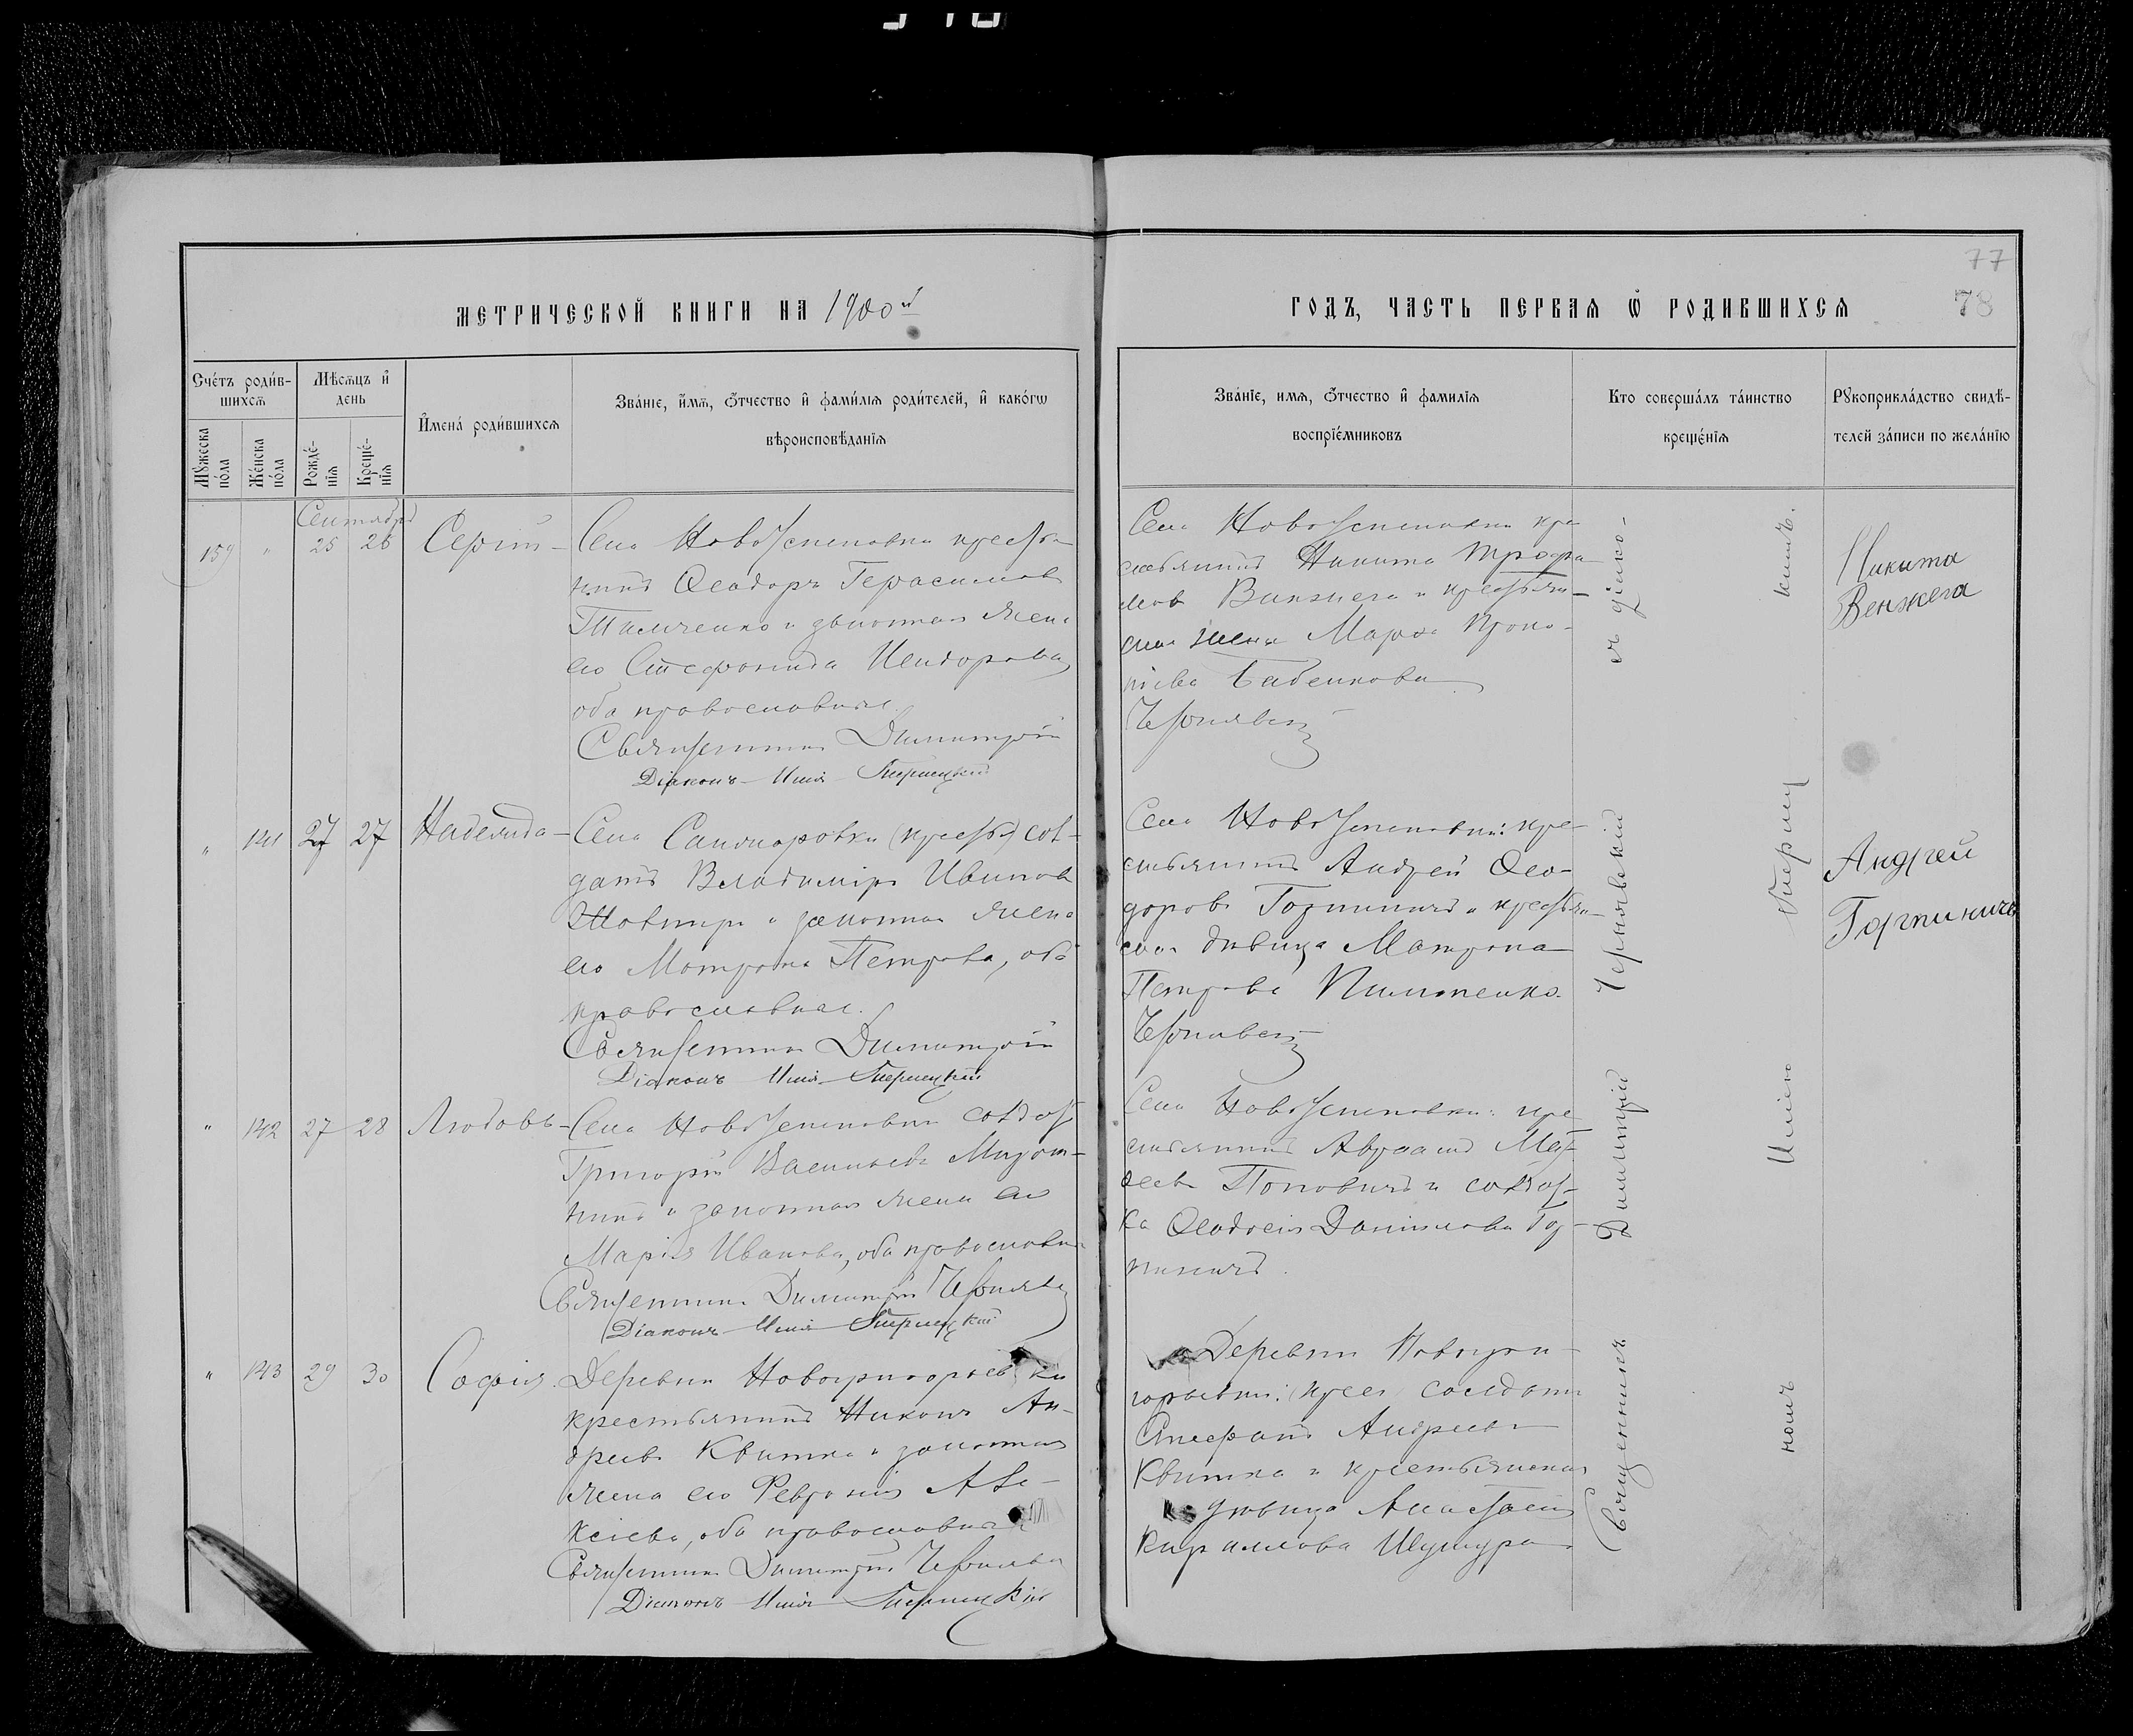 77
78
МЕТРИЧЕСКОЙ КНИГИ НА 1900й
ГОДЪ, ЧАСТЬ ПЕРВАЯ Ѽ РОДИВШИХСЯ
Сче́тъ роди́в-
шихсѧ
Мѣсѧцъ и҆
день
Мꙋжеска
по́ла
Же́нска
по́ла
Рожде́-
нїѧ
Креще́-
нїѧ
И҆мена̀ роди́вшихсѧ
Зва́нїе, и҆́мѧ, ѻ҆́тчество и҆ фами́лїѧ роди́телей, и҆ како́гѡ
вѣроисповѣ́данїѧ
Зва́нїе, имѧ, ѻ҆́тчество и҆ фамилїѧ
воспрїе́мниковъ
Кто соверша́лъ та́инство
креще́нїѧ
Рꙋкоприкла́дство свидѣ-
телей за́писи по жела́нїю
Сентябрь
159 " 25 26 Сергій
Села Новоуспеновки крестья-
нинъ Ѳеодоръ Герасимовъ
и законная жена
его Стефанида Исидорова,
оба православные.
Священникъ Димитрій
Діаконъ Илія
Села Новоуспеновки кре
стьянинъ Никита Трофи
мовъ Винжега и крестьян-
ская жена Марѳа Проко-
піева Бабенкова
Чернявскій
Никита
Венжега
" 141 27 27 Надежда
Села Санжаровки (крест) сол-
датъ Владиміръ Ивановъ
и законная жена
его Матрона Петрова, оба
православные.
Священникъ Димитрій
Діаконъ Илія
Села Новоуспеновки: кре-
стьянинъ Андрей Ѳео-
доровъ Горпиничъ и крестьян-
ская дѣвица Матрона
Петрова Пилипенко.
Чернявскій
Андрей
Горпиничъ
" 142 27 28 Любовь
Села Новоуспеновки солдатъ
Григорій Васильевъ
и законная жена его
Марія Иванова, оба православные
Священникъ Димитрій Чернявскій
Діаконъ Илія
Села Новоуспеновки: кре
стьянинъ Авраамъ
Поповичъ и солдат-
ка Ѳеодосія Даніилова Гор-
пиничъ.
" 143 29 30 Софія.
Деревни Новогригорьевки
крестьянинъ Никонъ Ан-
дреевъ Квитка и законная
жена его Февронія Але-
ксіева, оба православные
Священникъ Димитрій Чернявскій
Діаконъ Илія
Деревни Новогри-
горьевки: (крест) солдатъ
Стефанъ Андреевъ
Квитка и крестьянская
дѣвица Анастасія
Кириллова Шушура
Священникъ Димитрій Чернявскій съ діако-
номъ Иліею